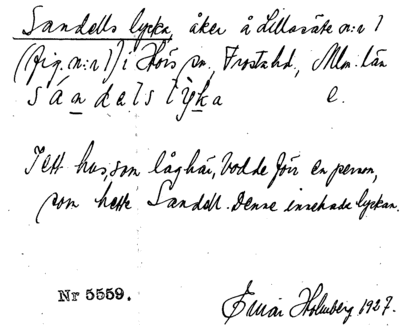 Sandells lycka, åker å Lillasäte n:r 1
(fig. n:r 1) i Hörs sn, Frosta hd, Mlm. län
sándals lỳka e.
I ett hus, som låg här, bodde förr en person,
som hette Sandell. Denne innehade lyckan.
Nr 5559.
Einar Holmberg 1927.